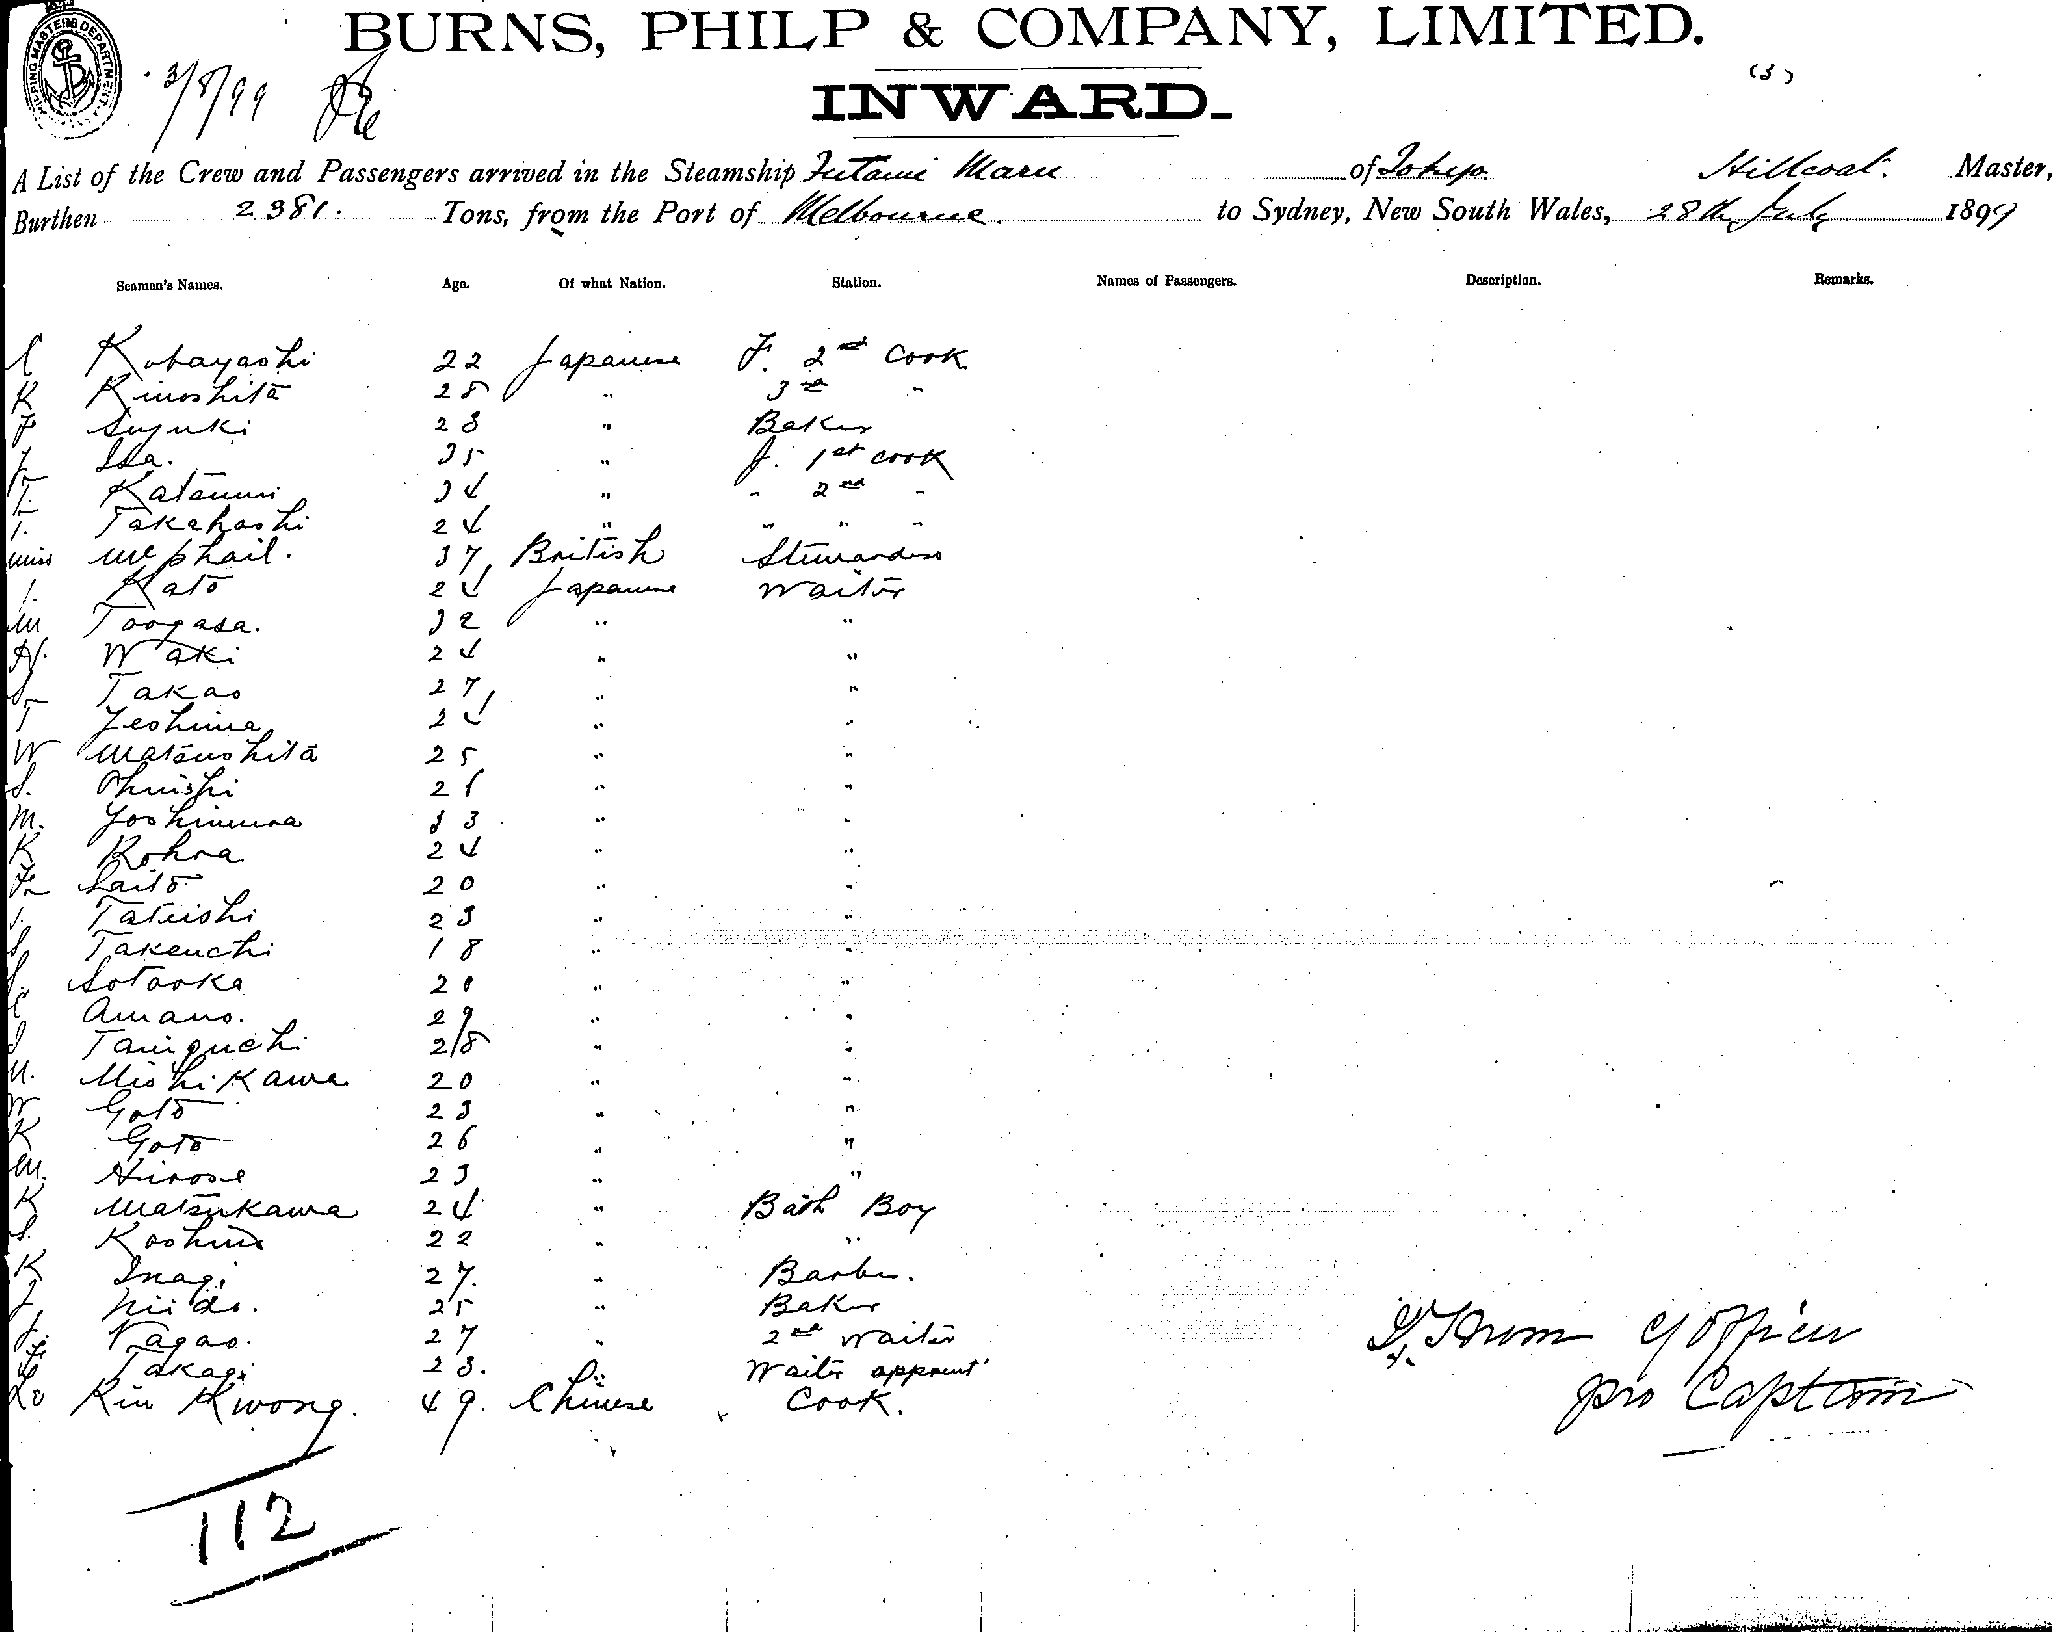 BURNS, PHILP & COMPANY, LIMITED.
3/8/99
(3)
INWARD.
A List of the Crew and Passengers arrived in the Steamship Futami Maru of Tokyo Hillcoat. Master,
Burthen 2381. Tons, from the Port of Melbourne. to Sydney, New South Wales, 28th July 1899
Seamen's Names. Age. Of what Nation. Station. Names of Passengers. Description. Remarks.
Kobayashi 22 Japanese F. 2nd Cook
K Kinoshita 28 " 3rd "
F Suzuki 23 " Baker
Isa. 35 " J. 1st cook
T. Katanuri 34 " " 2nd "
Takahashi 24 " " " "
Miss McPhail. 37 British Stewardess
Kato 24 Japanese Waiter
M Toogasa. 32 " "
H. Waki 24 " "
S Takao 27 " "
T Jeshima 24 " "
W Matsushita 25 " "
S. Ohnishi 21 " "
M. Yoshimura 33 " "
K Kohra 24 " "
F Saito 20 " "
Tateishi 23 " "
S Takeuchi 18 " "
S. Sotaoka 20 " "
Amano. 29 " "
Taniguchi 28 " "
Mishikawa 20 " "
W Goto 23 " "
K Goto 26 " "
M. Hirose 23 " "
K Matsukawa 24 " Bath Boy
S. Koshino 22 " "
K Inagi 27. " Barber.
Niido. 25 " Baker
Nagao. 27 " 2nd waiter
Takagi 23. " Waiter apprent'
Lo Kin Kwong. 49. Chinese Cook.
pro Captain
112